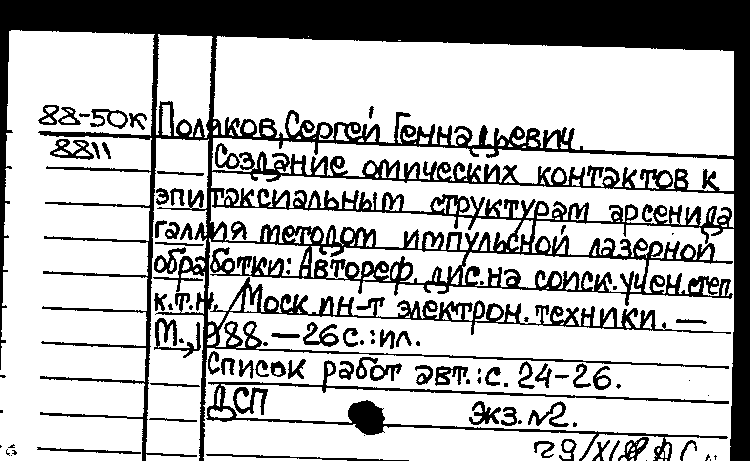 88-50к Поляков, Сергей Геннадьевич.
8811
Создание омических контактов к
эпитаксиальным структурам арсенида
галлия методом импульсной лазерной
обработки: Автореф. дис. на соиск. учен. степ.
к.т.н. / Моск. ин-т электрон. техники. —
М., 1988. — 26 с.: ил.
Список работ авт.: с. 24-26.
ДСП Экз. №2.